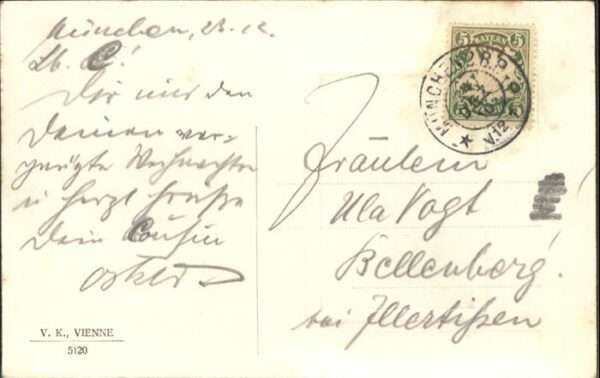 München, 23. 12.
Lb. C!
Dir und den
Deinen ver-
gnügte Weihnachten
u herzl Grüße
Dein Cousin
5
BAYERN
5
MÜNCHEN
V.12
Fräulein
Ula Vogt
Bellenberg!
bei Illertißen
V. K., VIENNE
5120